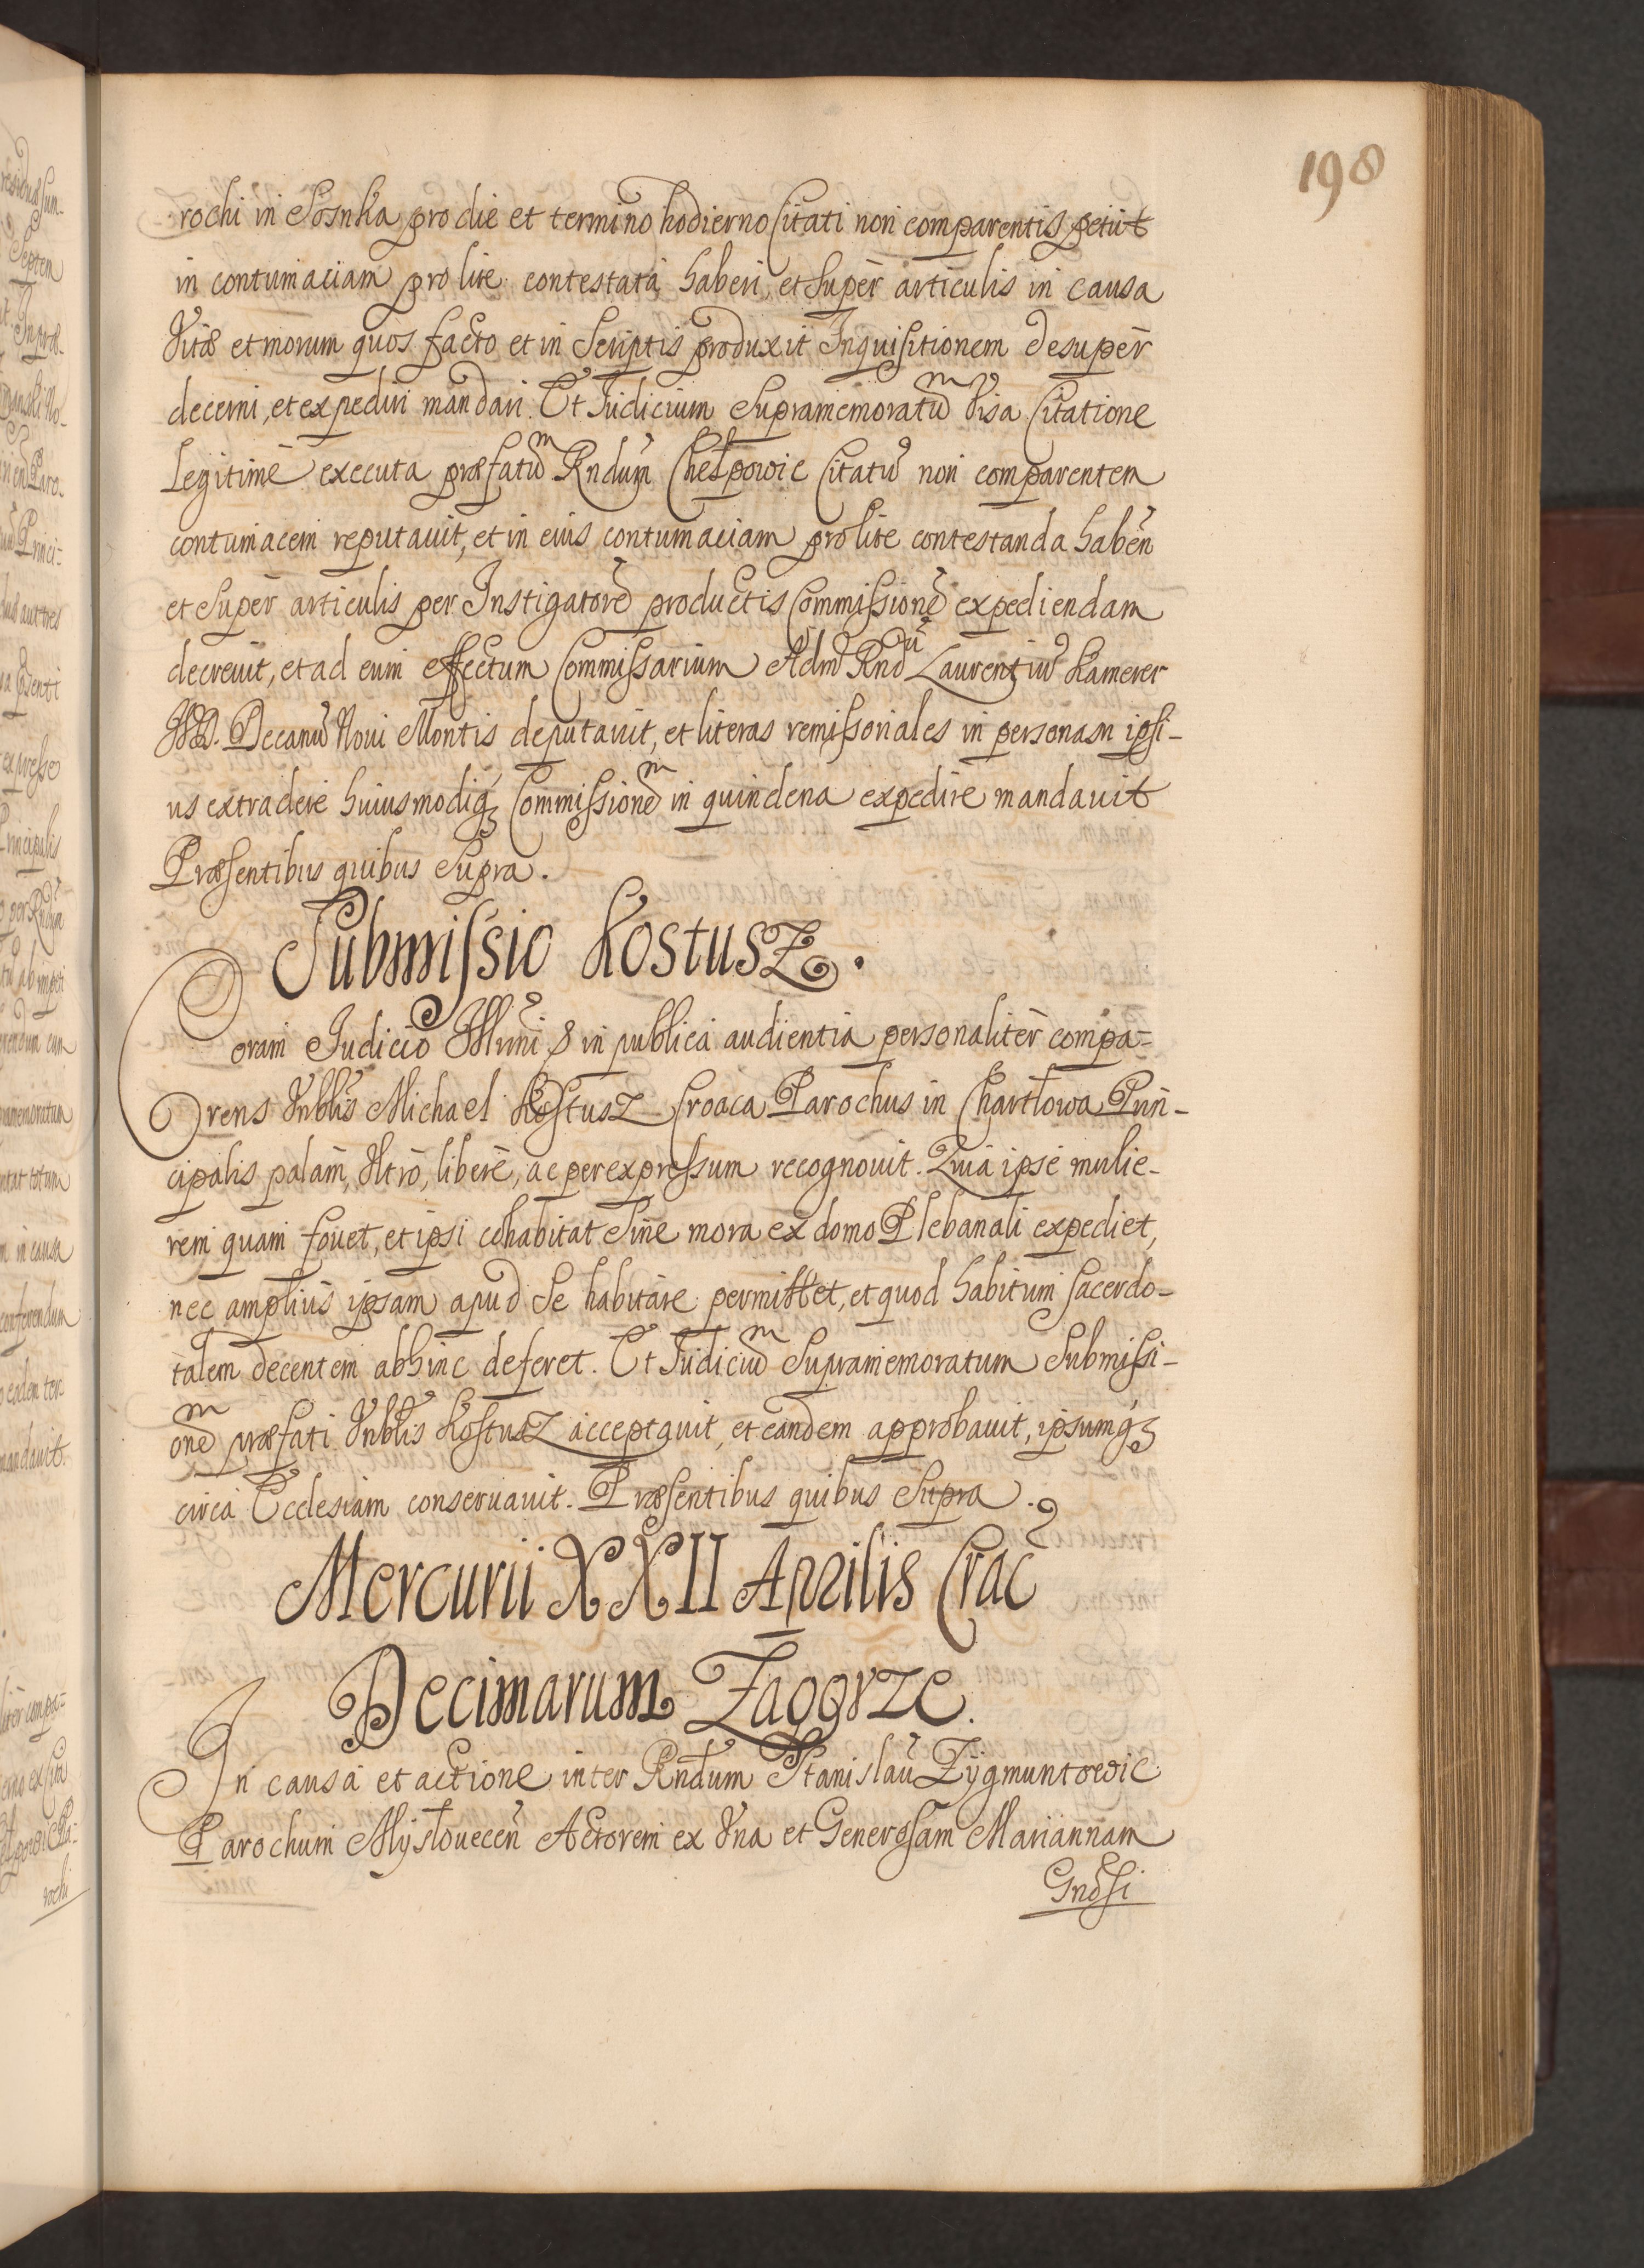 198
rochi in Sosnka pro die et termino hodierno Citati non comparentis petiit
in contumaciam pro lite contestata haberi, et Super articulis in causa
Vitæ et morum quos facto et in Scriptis produxit Inquisitionem desuper
decerni, et expediri mandari. Et Iudicium Supramemoratū Visa Citatione
Legitime executa præfatū Rndum Chełpowic Citatū non comparentem
contumacem reputauit, et in eius contumaciam pro lite contestanda haben
et Super articulis per Instigatorē productis Commissionē expediendam
decreuit, et ad eum effectum Commissarium Adm̄ Rndū Laurentiū Kamerer
Decanū Noui Montis deputauit, et literas remissoriales in personam ipsi-
us extradere huiusmodiq̃ Commissionē in quindena expedire mandauit
Præsentibus quibus Supra.
Submissio Kostusz.
Coram Iudicio Illmi & in publica audientia personaliter compa-
rens Vnblis Michael Kostusz Croaca Parochus in Chartłowa Prin-
cipalis palam, Vltro, libere, ac per expressum recognouit. Quia ipse mulie-
rem quam fouet, et ipsi cohabitat Sine mora ex domo Plebanali expediet,
nec amplius ipsam apud Se habitare permittet, et quod habitum sacerdo-
talem decentem abhinc deferet. Et Iudiciū Supramemoratum Submissi-
onē præfati Vnblis Kostusz acceptauit, et eandem approbauit, ipsumq̃
circa Ecclesiam conseruauit. Præsentibus quibus Supra.
Mercurii XXII Aprilis Crac
Decimarum Zagorze.
In causa et actione inter Rndum Stanislaū Zÿgmuntowic
Parochum Mÿsłouecen Actorem ex Vna et Generosam Mariannam
Gnosi